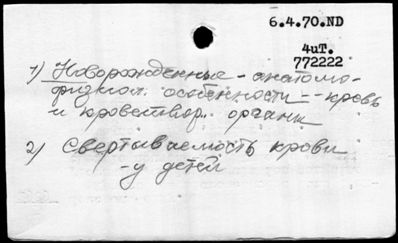 6.4.70.ND
4иТ.
772222
1) Новорожденные - анатомо-
физиол. особенности -- кровь
и кроветвор. органы
2) Свертываемость крови
- у детей